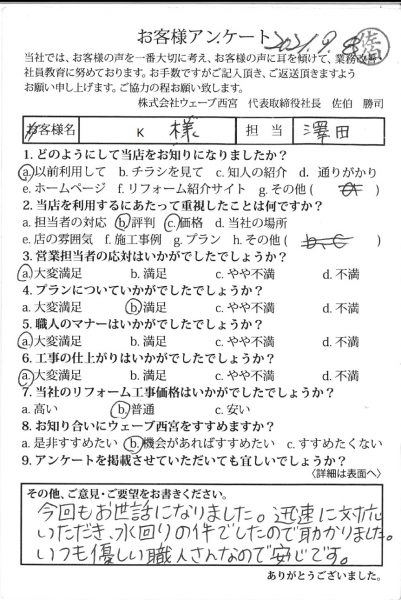 お客様アンケート 2021.9.8 佐伯
当社では、お客様の声を一番大切に考え、お客様の声に耳を傾けて、業務改善
社員教育に努めております。お手数ですがご記入頂き、ご返送頂きますよう
お願い申し上げます。ご協力の程お願い致します。
株式会社ウェーブ西宮 代表取締役社長 佐伯 勝司
お客様名 K 様 担当 澤田
1. どのようにして当店をお知りになりましたか?
a. 以前利用して b. チラシを見て c. 知人の紹介 d. 通りがかり
e. ホームページ f. リフォーム紹介サイト g. その他(
2. 当店を利用するにあたって重視したことは何ですか?
a. 担当者の対応 b. 評判 c. 価格 d. 当社の場所
e. 店の雰囲気 f. 施工事例 g. プラン h. その他( b、c
3. 営業担当者の応対はいかがでしたでしょうか?
a. 大変満足 b. 満足 c. やや不満 d. 不満
4. プランについていかがでしたでしょうか?
a. 大変満足 b. 満足 c. やや不満 d. 不満
5. 職人のマナーはいかがでしたでしょうか?
a. 大変満足 b. 満足 c. やや不満 d. 不満
6. 工事の仕上がりはいかがでしたでしょうか?
a. 大変満足 b. 満足 c. やや不満 d. 不満
7. 当社のリフォーム工事価格はいかがでしたでしょうか?
a. 高い b. 普通 c. 安い
8. お知り合いにウェーブ西宮をすすめますか?
a. 是非すすめたい b. 機会があればすすめたい c. すすめたくない
9. アンケートを掲載させていただいても宜しいでしょうか?
〈詳細は表面へ〉
その他、ご意見・ご要望をお書きください。
今回もお世話になりました。迅速に対応
いただき、水回りの件でしたので助かりました。
いつも優しい職人さんなので安心です。
ありがとうございました。